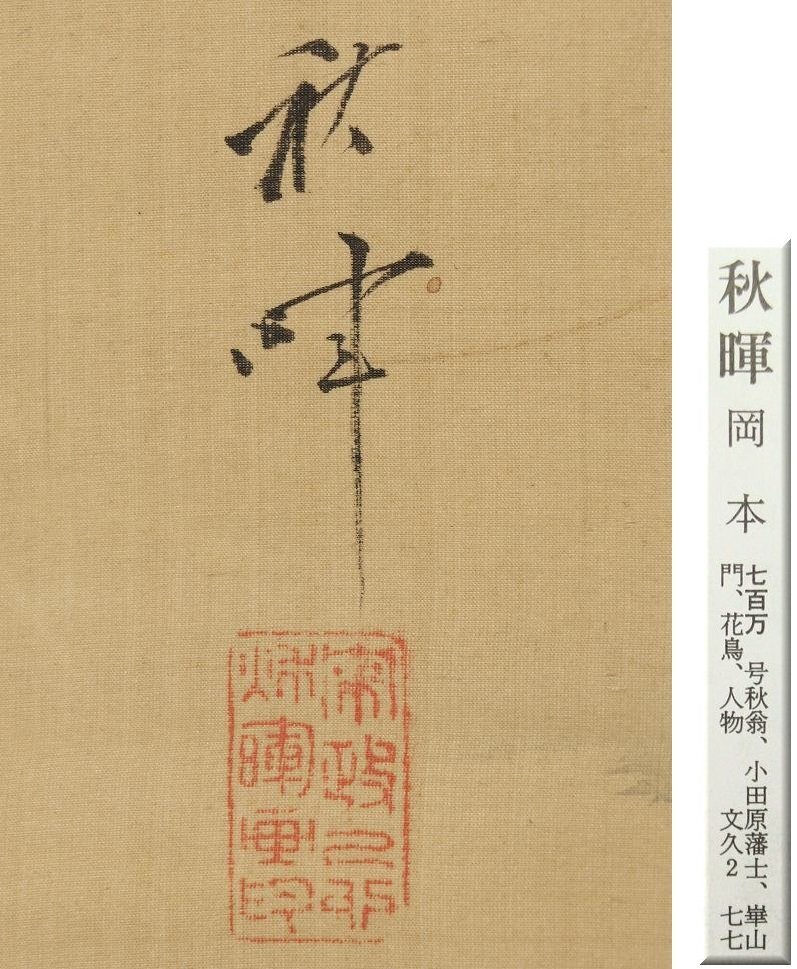 秋暉
秋暉画印
秋暉 岡本
七百万 号秋翁、小田原藩士、崋山
門、花鳥、人物 文久2 七七